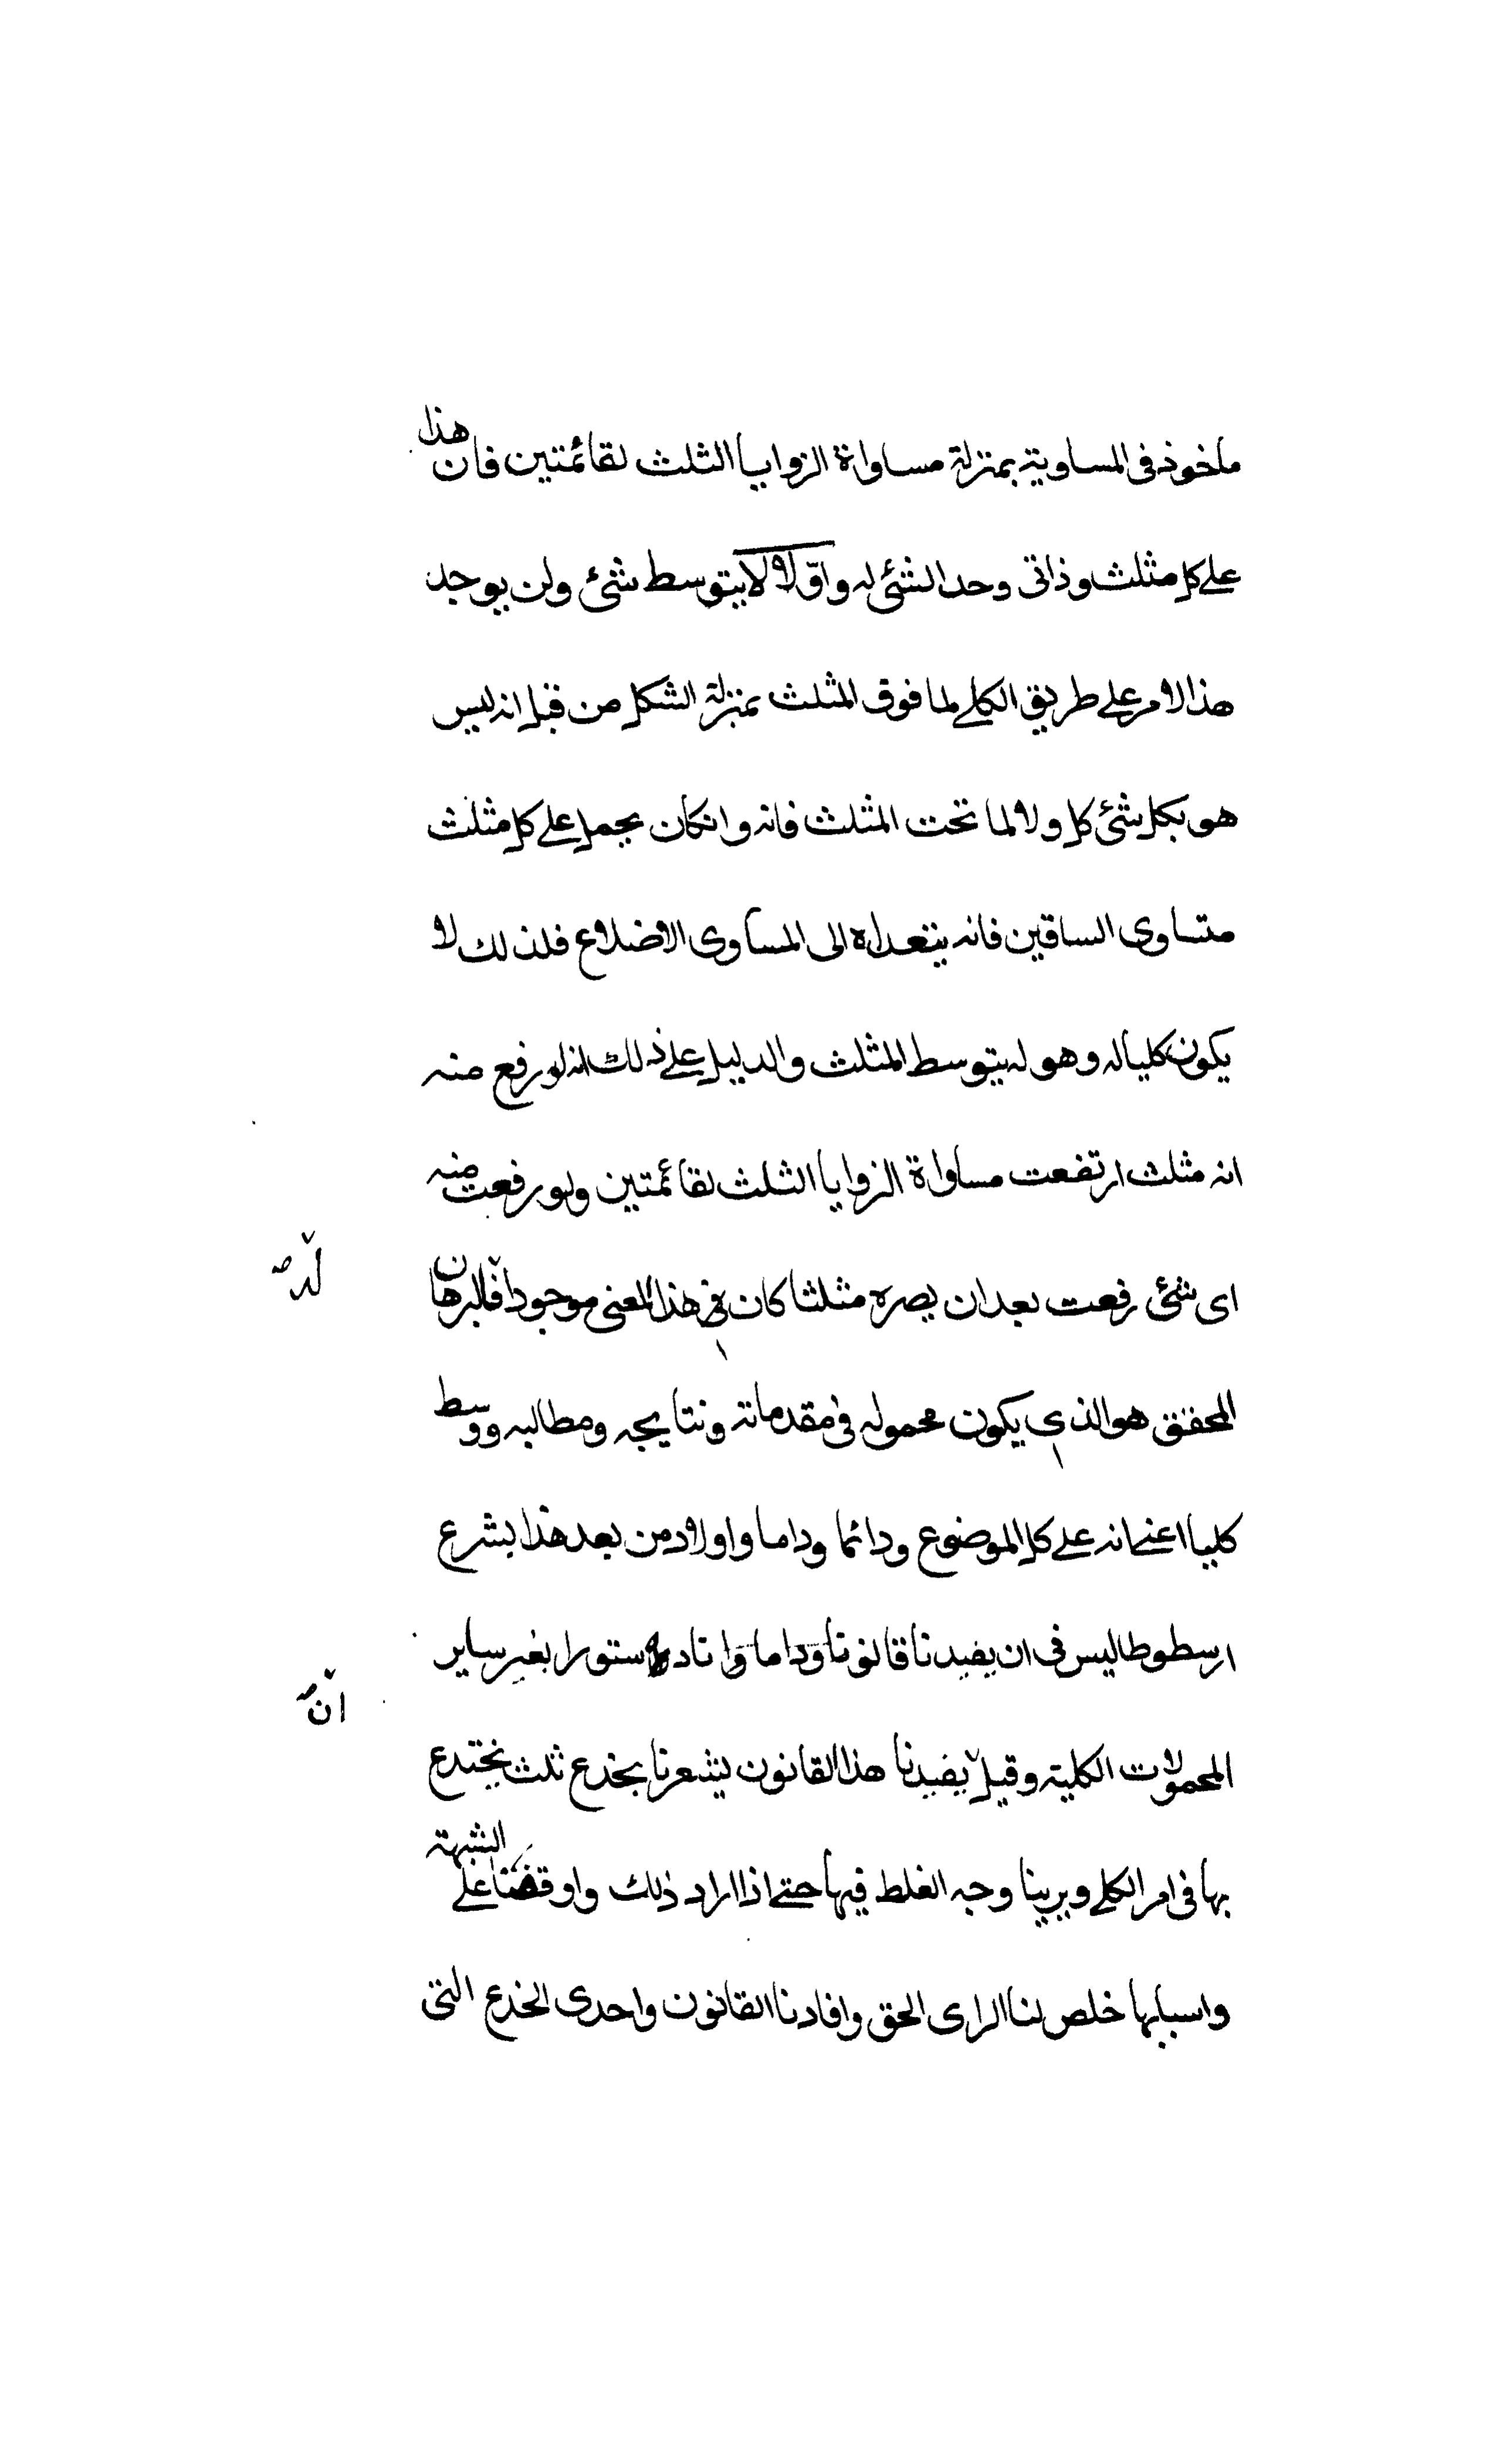 ماخوذ فى المساوية بمنزلة مساواة الزوايا الثلث لقائمتين فان هذا
على كل مثلث وذاتى وحد الشئ له واوّلا لا بتوسط شئ ولن يوجد
هذا الامر على طريق الكلى لما فوق المثلث بمنزلة الشكل من قبل انه ليس
هو بكل شئ كل ولا لما تحت المثلث فانه وانكان يحمل على كل مثلث
متساوى الساقين فانه يتعداه الى المساوى الاضلاع فلذلك لا
يكون كليا له وهو له بتوسط المثلث والدليل على ذلك انه لو رفع منه
انه مثلث ارتفعت مساواة الزوايا الثلث لقائمتين ولو رفعت منه
اى شئ رفعت بعد ان يصره مثلثا كان فى هذا المعنى موجودا فالبرهان
له
المحقق هو الذى يكون محموله فى مقدماته ونتايجه ومطالبه ووسط
كليا اعنى انه على كل الموضوع ودائما وداما واولا ومن بعد هذا يشرع
ارسطوطاليس فى ان يفيدنا قانونا وداما وانا دستورا بغير ساير
ان
المحمولات الكلية وقيل يفيدنا هذا القانون يشعرنا بخدع ثلث نختدع
بها فى امر الكلى ويرينا وجه الغلط فيها حتى اذا اراد ذلك واوقفنا على الشبهة
واسبابها خلص لنا الراى الحق وافادنا القانون واحدى الخدع التى